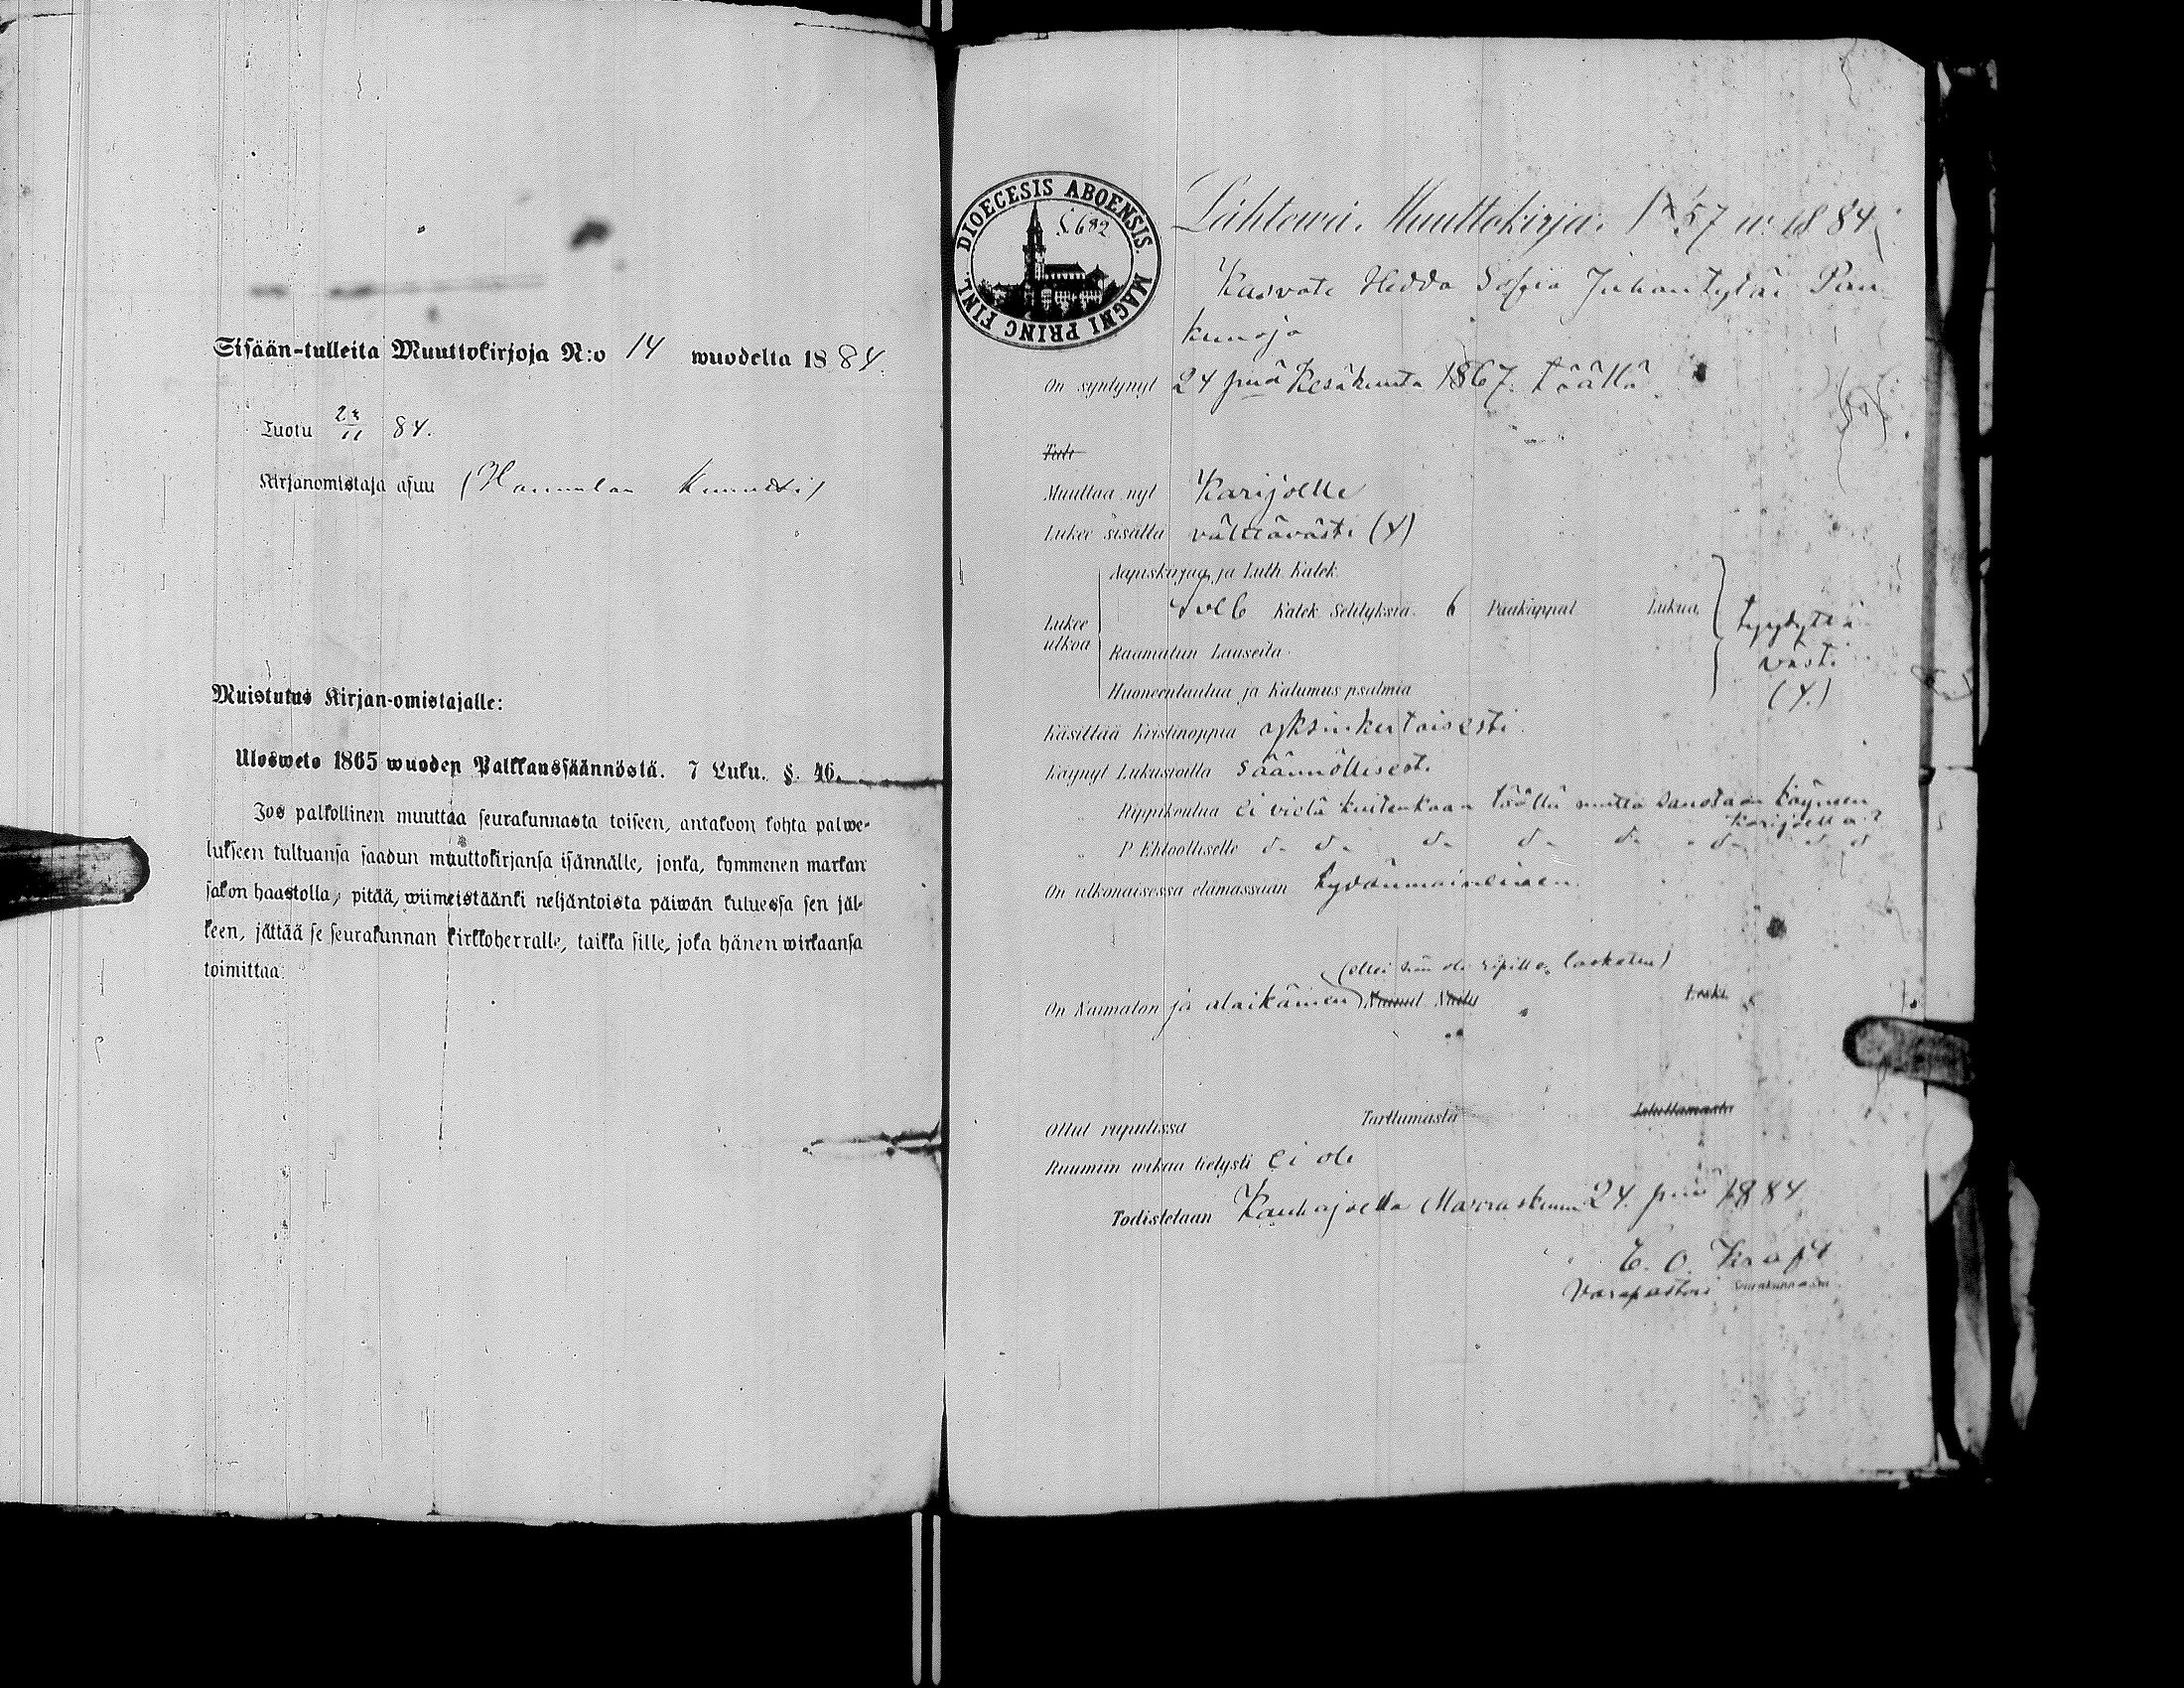 Sisään-tulleita Muuttokirjoja N:o 14 wuodelta 1884.
Tuotu 84.
Kirjanomistaja asuu
Muistutus Kirjan-omistajalle:
Ulosweto 1865 wuoden Palkkaussäännöstä. 7 Luku. §. 46.
Jos palkollinen muuttaa seurakunnasta toiseen, antakoon kohta palwe-
lukseen tultuansa saadun muuttokirjansa isännälle, jonka, kymmenen markan
sakon haastolla, pitää, wiimeistäänki neljäntoista päiwän kuluessa sen jäl-
keen, jättää se seurakunnan kirkkoherralle, taikka sille, joka hänen wirkaansa
toimittaa.
DIOECESIS ABOENSIS. MAGNI PRINC FINL.
S. 682
Lähtewä Muuttokirja. N 57 w. 1884
Kasvate Hedda Sofia Juhantytär Pan-
kunoja
On syntynyt 24 pnä Kesäkuuta 1867. täällä
Tuli
Muuttaa nyt Karijoelle
Lukee sisältä välttävästi (4)
Aapiskirjaa ja Luth. Katek.
Katek. Selityksiä. 6 Pääkappal. Lukua. tyydyttä-
Lukee
ulkoa
Raamatun Lauseita. västi
Huoneentaulua ja Katumus psalmia (4.)
Käsittää Kristinoppia yksinkertaisesti.
Käynyt Lukusioilla säännöllisesti
" Rippikoulua ei vielä kuitenkaan täällä mutta sanotaan käyneen
Karijoella?
" P. Ehtoolliselle d:o d:o d:o d:o d:o d:o d:o
On ulkonaisessa elämässään sydänmainenen.
On Naimaton ja alaikäinen Nainut Naitu Leski
Ollut rupulissa Tarttumasta Istuttamasta
Ruumiin wikaa tietysti ei ole
Todistetaan Kauhajoella Marraskuun 24. pnä 1884
E. O. Kraft
Varapastori seurakunnassa